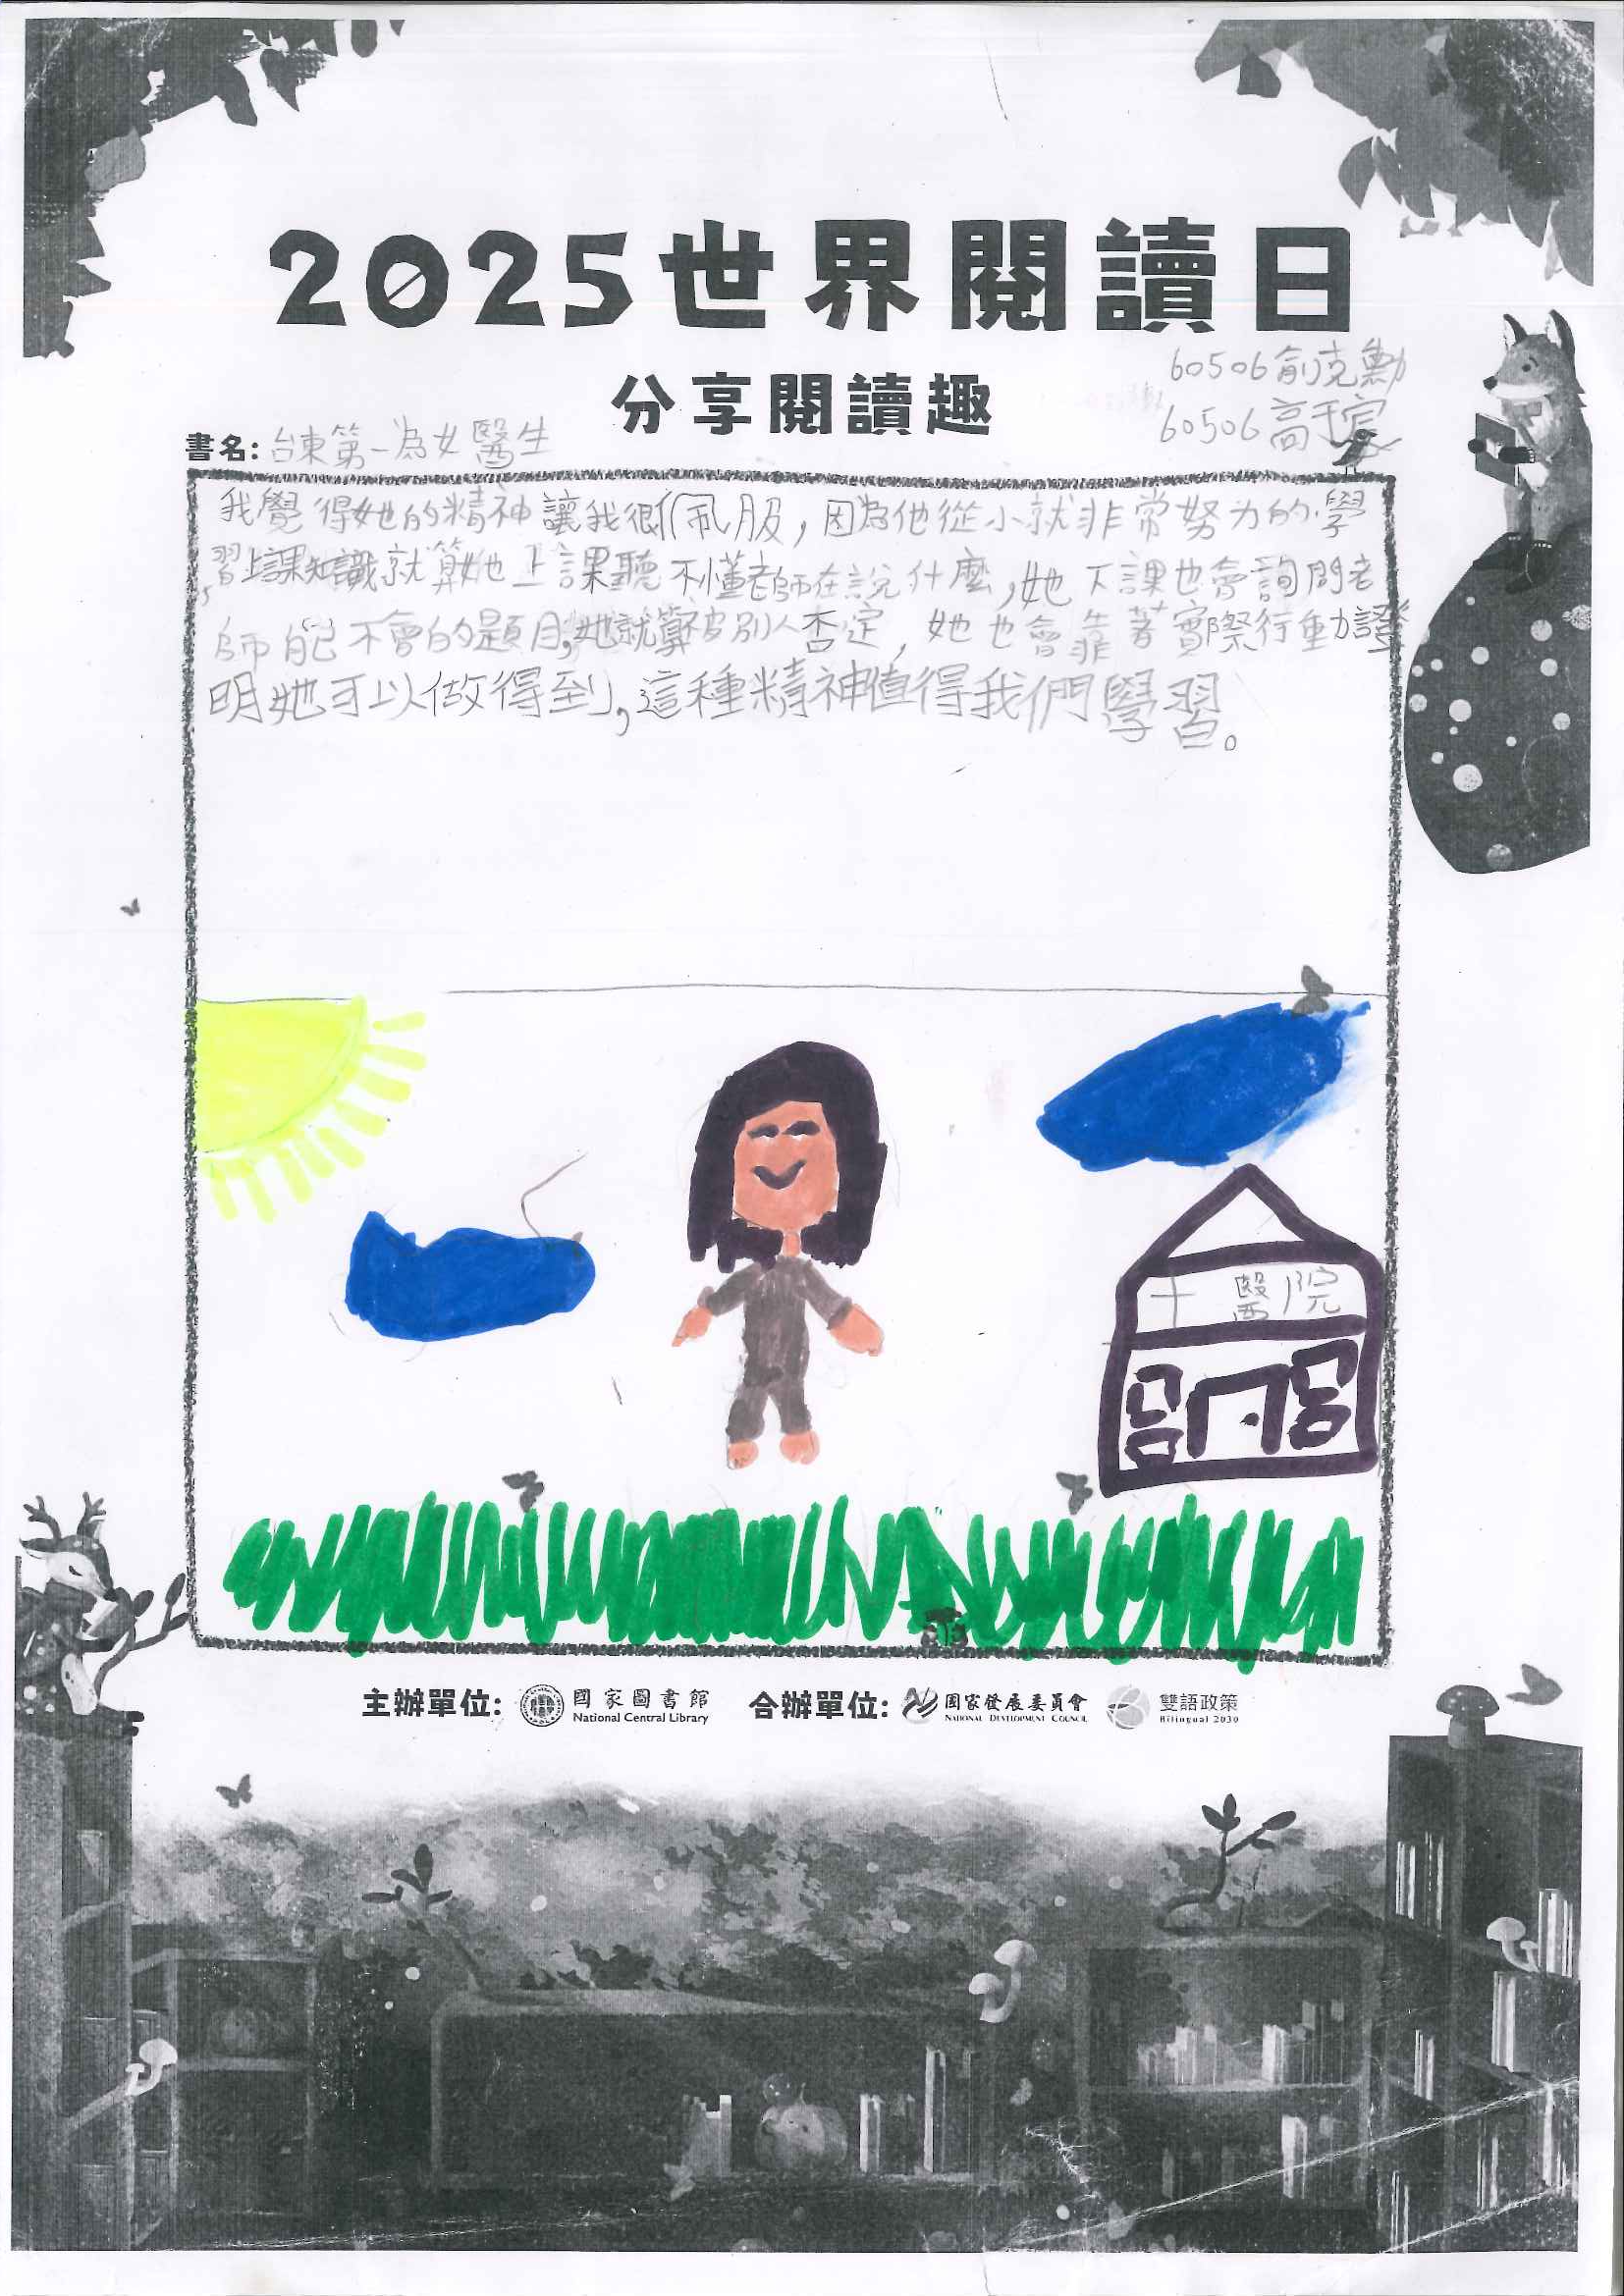 2025世界閱讀日
分享閱讀趣
60506俞克勳
60506高于宸
書名:台東第一為女醫生
我覺得她的精神讓我很佩服,因為他從小就非常努力的學
習上課知識,就算她上課聽不懂老師在說什麼,她下課也會詢問老
師自己不會的題目,她就算被別人否定,她也會靠著實際行動證
明她可以做得到,這種精神值得我們學習。
十 醫院
主辦單位: 國家圖書館 National Central Library 合辦單位: 國家發展委員會 NATIONAL DEVELOPMENT COUNCIL 雙語政策 Bilingual 2030